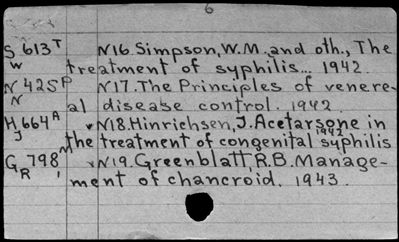 6
S 613 T N16. Simpson, W.M. and oth., The
W treatment of syphilis... 1942.
N 42S P N17. The Principles of venere-
N al disease control. 1942
H 664 A N18. Hinrichsen, J. Acetarsone in
J the treatment of congenital syphilis 1942
G 798 N19. Greenblatt, R.B. Manage-
R ment of chancroid. 1943.